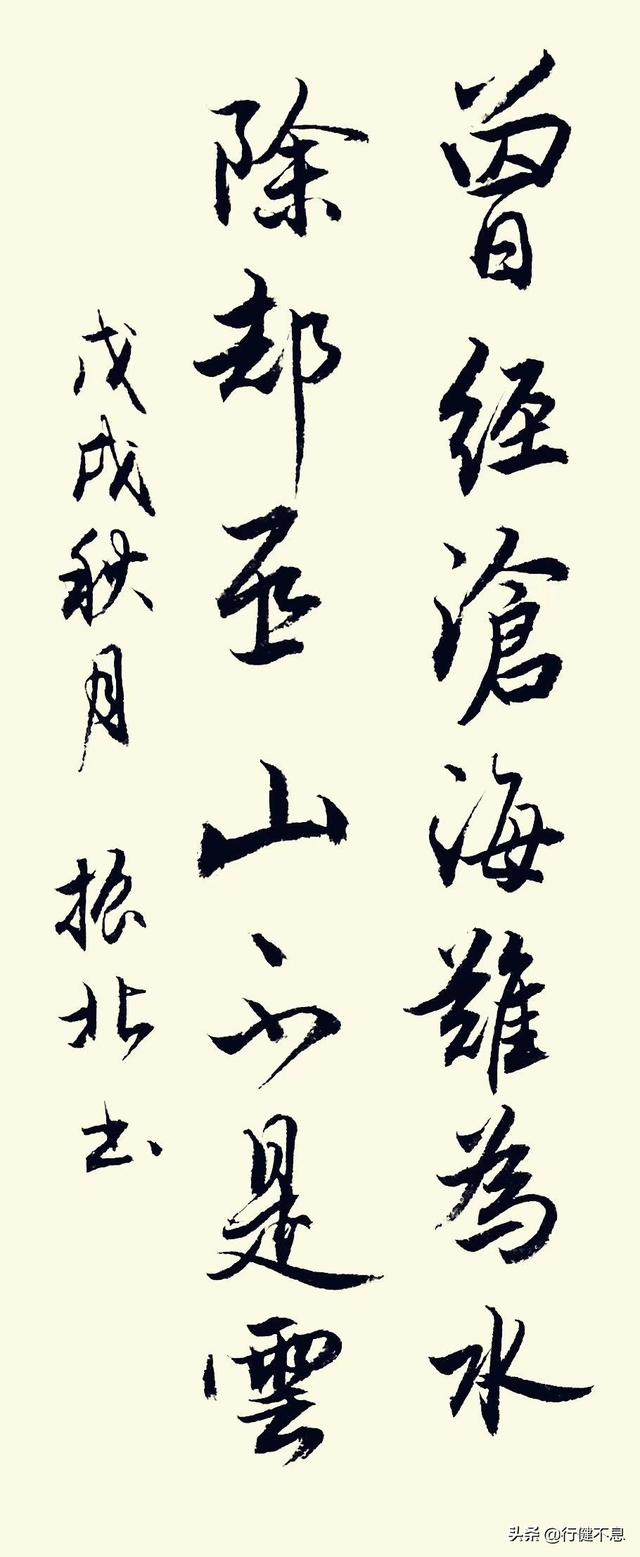 曾經滄海難為水
除却巫山不是雲
戊戌秋月 振北书
头条 @行健不息